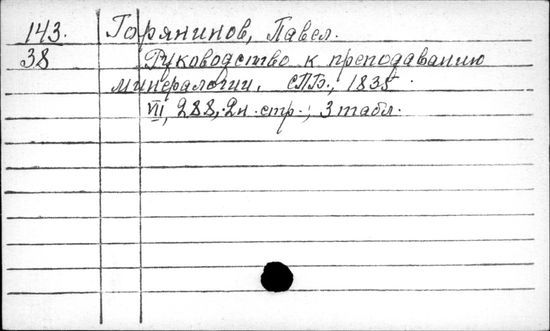 143. Горянинов, Павел.
38 Руководство к преподаванию
минералогии. СПБ., 1835.
VII, 288, 2н. стр.; 3 табл.